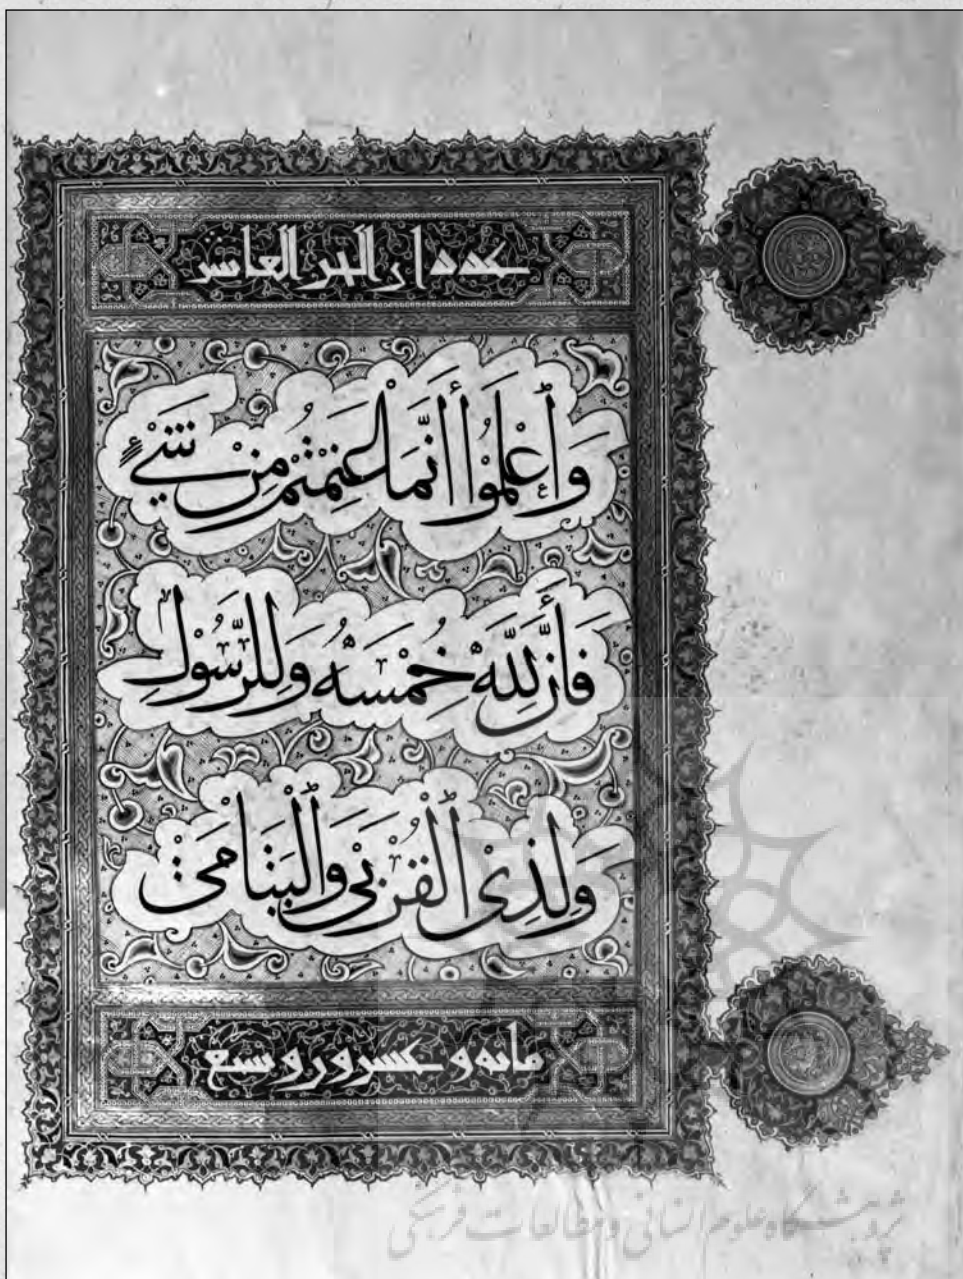 عدد اى الجز العاشر
وَٱعْلَمُوْا أَنَّمَا غَنِمْتُمْ مِنْ شَيْءٍ
فَأَنَّ لِلّٰهِ خُمُسَهُ وَلِلرَّسُوْلِ
وَلِذِى ٱلْقُرْبَى وَٱلْيَتَامَى
مائه و عشرون و سبع
پژوهشگاه علوم انسانی و مطالعات فرهنگی